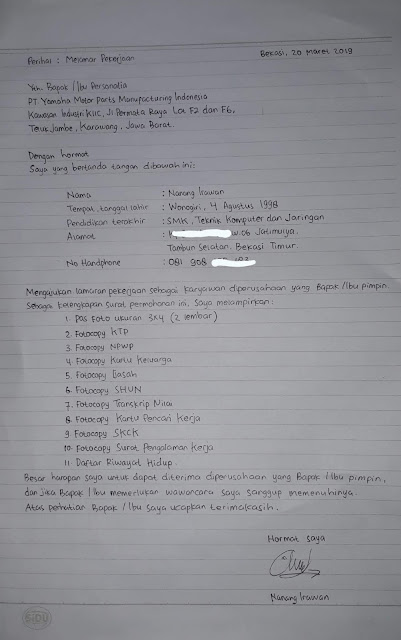 Perihal : Melamar Pekerjaan
Bekasi, 20 Maret 2019
Yth. Bapak / Ibu Personalia
PT Yamaha Motor Parts Manufacturing Indonesia
Kawasan Industri KIIC, Jl Permata Raya Lot F2 dan F6,
Teluk Jambe, Karawang, Jawa Barat.
Dengan hormat
Saya yang bertanda tangan dibawah ini :
Nama : Nanang Irawan
Tempat, tanggal lahir : Wonogiri, 4 Agustus 1998
Pendidikan terakhir : SMK, Teknik Komputer dan Jaringan
Alamat : w.06 Jatimulya,
Tambun Selatan. Bekasi Timur.
No Handphone : 081 908
Mengajukan lamaran pekerjaan sebagai karyawan diperusahaan yang Bapak / Ibu pimpin.
Sebagai kelengkapan surat permohonan ini, saya melampirkan :
1. Pas Foto ukuran 3x4 (2 lembar)
2. Fotocopy KTP
3. Fotocopy NPWP
4. Fotocopy Kartu Keluarga
5. Fotocopy Ijasah
6. Fotocopy SHUN
7. Fotocopy Transkrip Nilai
8. Fotocopy Kartu Pencari Kerja
9. Fotocopy SKCK
10. Fotocopy Surat Pengalaman Kerja
11. Daftar Riwayat Hidup.
Besar harapan saya untuk dapat diterima diperusahaan yang Bapak / Ibu pimpin,
dan jika Bapak / Ibu memerlukan wawancara saya sanggup memenuhinya.
Atas perhatian Bapak / Ibu saya ucapkan terimakasih.
Hormat saya
Nanang Irawan
SiDU